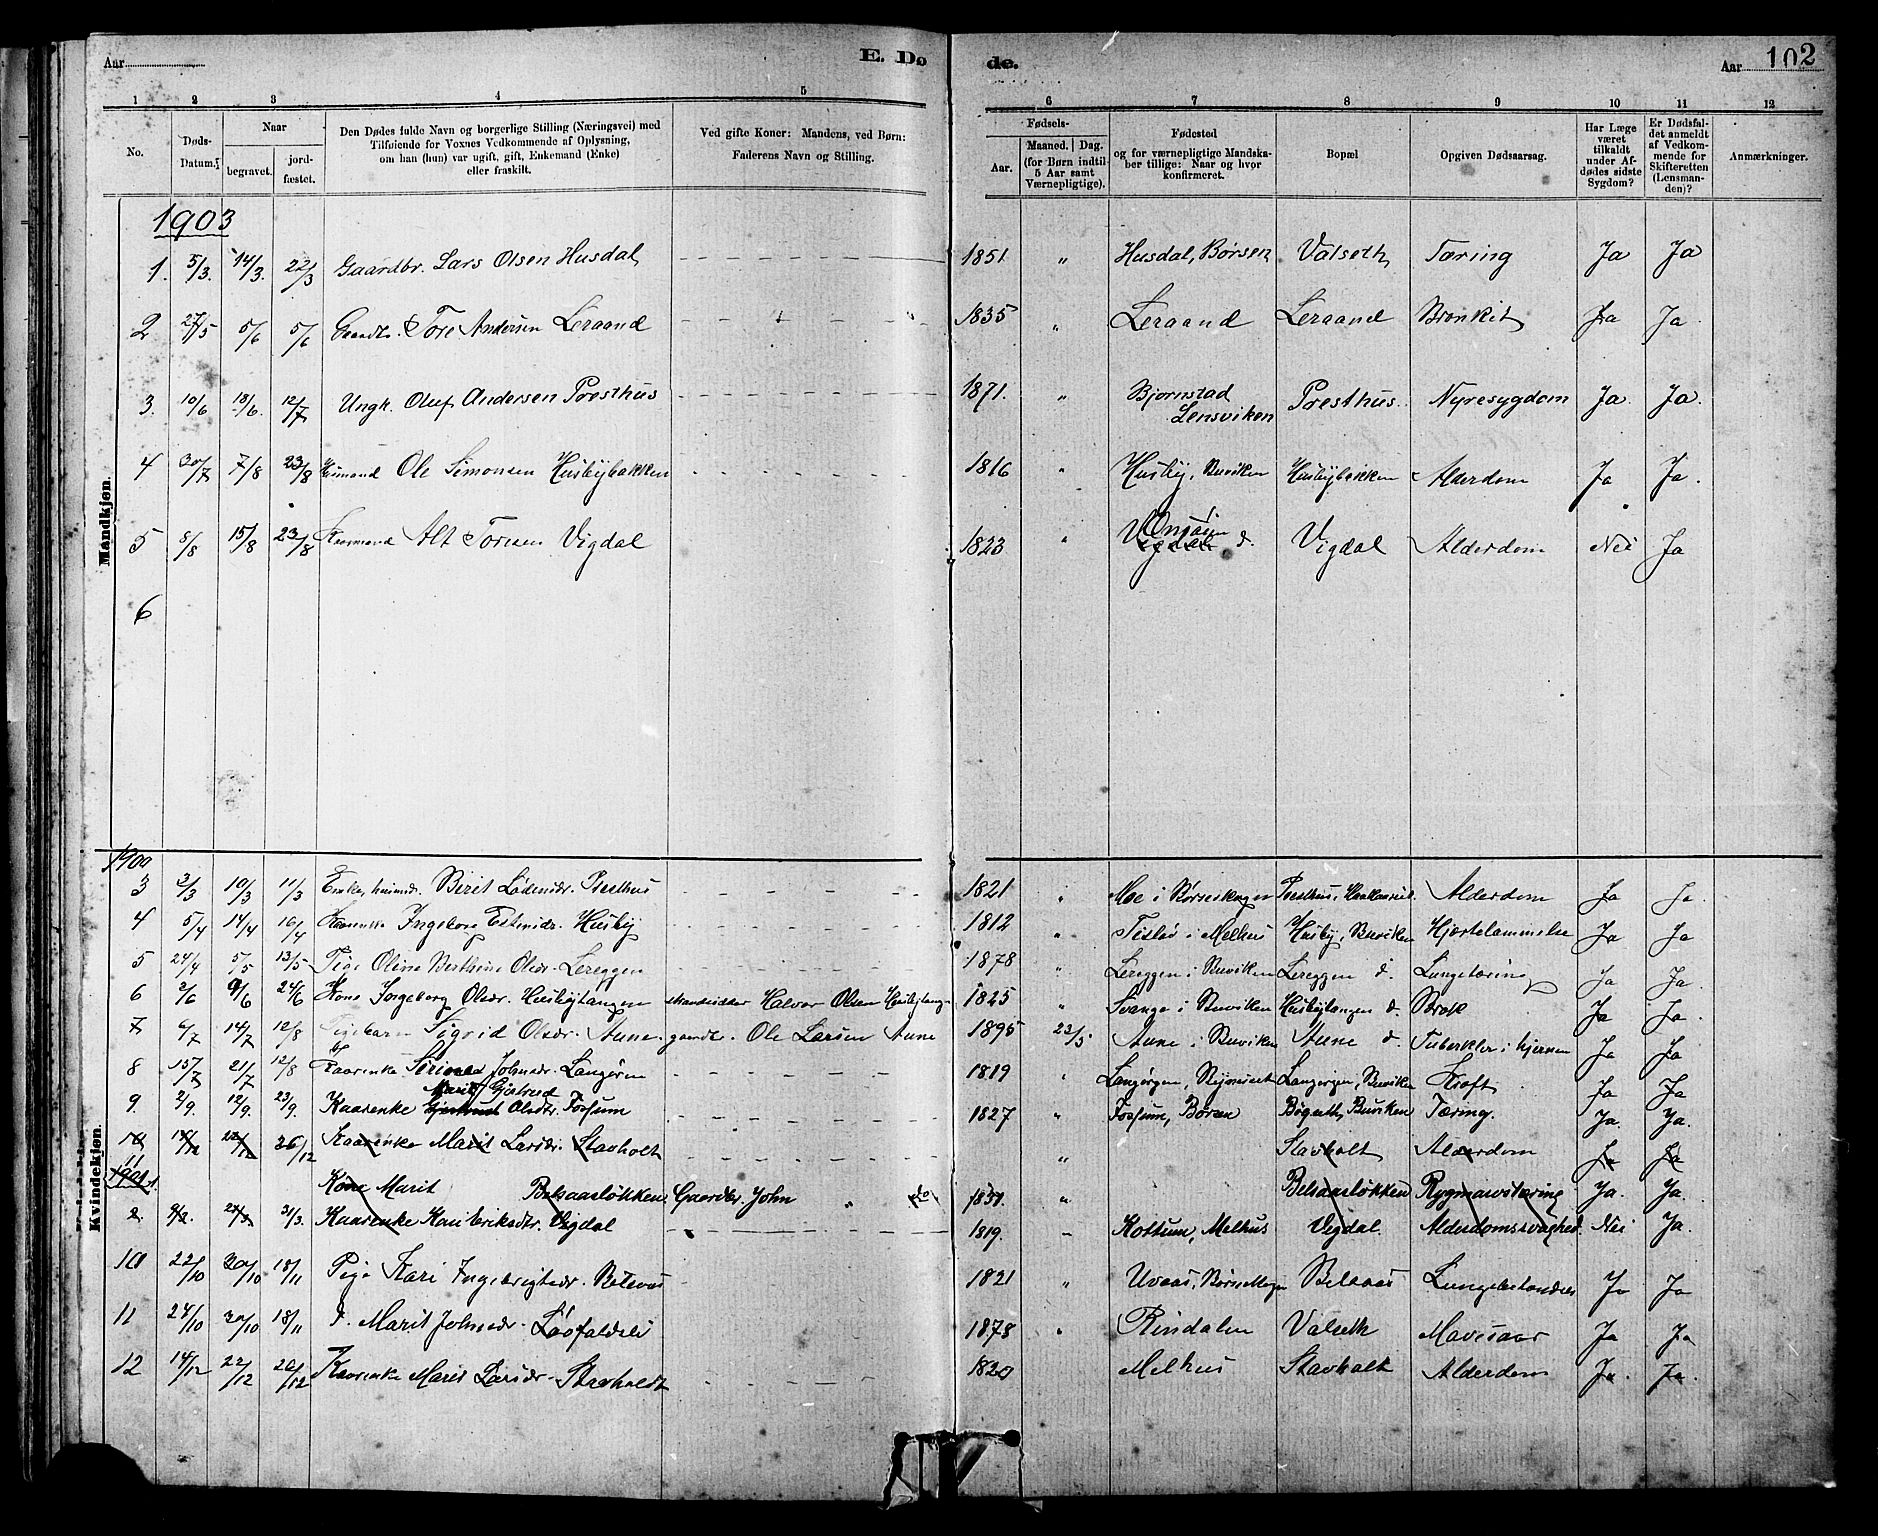 Aar
E. Dø
de.
Aar 102
1 2 3 4 5 6 7 8 9 10 11 12
No.
Døds-Datum.
Naar
begravet.
jord-fæstet.
Den Dødes fulde Navn og borgerlige Stilling (Næringsvei) med
Tilføiende for Voxnes Vedkommende af Oplysning,
om han (hun) var ugift, gift, Enkemand (Enke)
eller fraskilt.
Ved gifte Koner: Mandens, ved Børn:
Faderens Navn og Stilling.
Fødsels-
Aar.
Maaned. | Dag.
(for Børn indtil
5 Aar samt
Værnepligtige).
Fødested
og for værnepligtige Mandska-
ber tillige: Naar og hvor
konfirmeret.
Bopæl
Opgiven Dødsaarsag.
Har Læge
været
tilkaldt
under Af-
dødes sidste
Sygdom?
Er Dødsfal-
det anmeldt
af Vedkom-
mende for
Skifteretten
(Lensman-
den)?
Anmærkninger.
Mandkjøn.
1903
1. 5/3. 14/3. 22/3 Gaardbr. Lars Olsen Husdal 1851 " Husdal, Børsen Valseth Tæring Ja Ja
2 27/5 5/6 5/6 Gaardbr. Tore Andersen Leraand 1835 " Leraand Leraand Bronkit Ja Ja
3. 10/6 18/6. 12/7 Ungk. Oluf Andersen Presthus 1871. " Bjørnstad Lensviken Presthus. Nyresygdom Ja Ja
4 30/7 7/8 23/8 Husmand Ole Simonsen Husbybakken 1816 " Husby, Buviken Husbybakken Alderdom Ja Ja.
5 8/8 15/8 23/8 Kaarmand Alt Toresen Vigdal 1823 " d. Vigdal Alderdom Nei Ja
6
Kvindekjøn.
1900
3 3/3 10/3 11/3 Enke, Berit Lødensdr. Presthus 1821 " Moe i Børseskogen Presthus, Alderdom Ja Ja
4 5/4 14/4 16/4 Kaarenke Ingeborg Estensdr. Husby 1812 " i Melhus Husby, Buviken Hjertelammelse Ja Ja
5 24/4 5/5 13/5 Pige Oline Berthine Olsdr. Lereggen 1878 " Lereggen i Buviken Lereggen d. Lungetæring Ja Ja.
6 2/6 9/6 24/6 Kone Ingeborg Olsdr. Husbytangen strandsidder Halvor Olsen Husbytang 1825 " Svange i Buviken Husbytangen d. Brok Ja Ja.
7 6/7 14/7 12/8 Pigebarn Sigrid Olsdr. Aune gaardbr. Ole Larsen Aune 1895 23/5 Aune i Buviken Aune d. Tuberkler i hjernen Ja Ja
8 15/7 21/7 12/8 Kaarenke Johnsdr. Langørgen 1819 " Langørgen, Langørgen, Buviken Kræft Ja Ja
Marit Gjertrud
9 2/9. 12/9. 23/9. Kaarenke Gjertrud Olsdtr. Fossum 1827 " Fossum, Børsen Buviken Tæring. Ja. Ja.
10 22/12 26/12 Kaarenke Marit Larsdr. Stavholt " Stavholt Alderdom Ja Ja
11
1901
1. Kone Marit Belsaasløkken Gaardbr. John " do 1851. " Belsaasløkken Ja. Ja.
2. 31/3. Kaarenke Kari Eriksdtr. Vigdal 1819. " Kottum, Melhus Vigdal. Alderdomssvaghed. Nei Ja
10 22/10 30/10 18/11 Pige Kari Ingebrigtsdr. Belsaas 1821 " Uvaas, Belsaas Lungebetændelse Ja Ja
11 24/10 30/10 18/11 Marit Johnsdr. 1878 " Rindalen Valseth Mavesaar Ja Ja
12 14/12 22/12 26/12 Kaarenke Marit Larsdr. Stavholdt 1820 Melhus Stavholt Alderdom Ja. Ja.